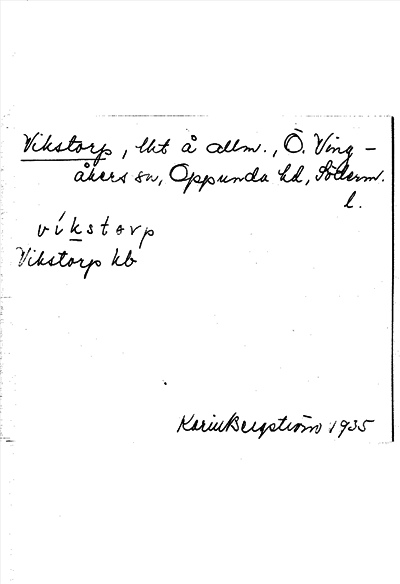 Vikstorp, lht å allm., Ö. Ving-
åkers sn, Oppunda hd, Söderm.
l.
víkstorp
Vikstorp kb
Karin Bergström 1935